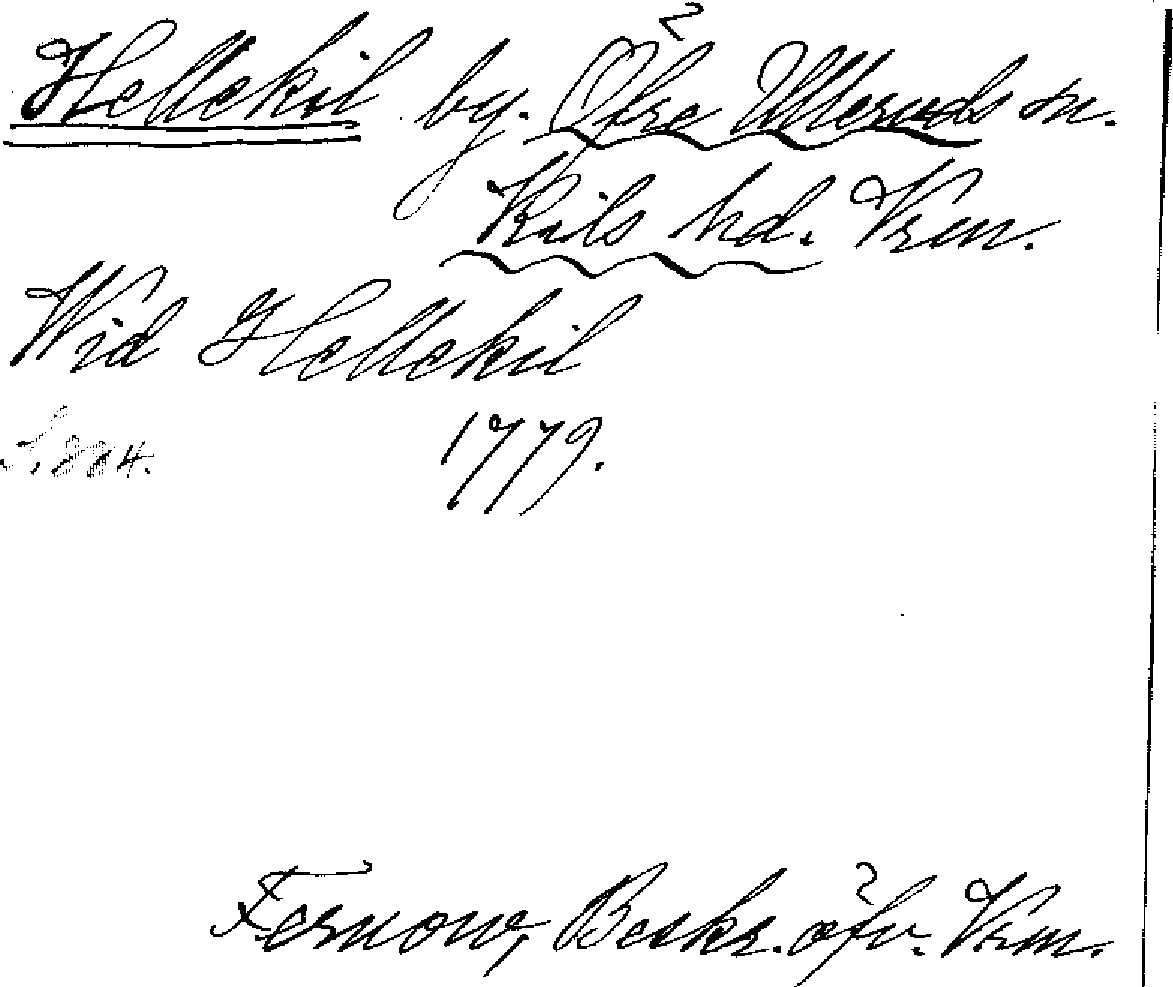 Hellekil by. Öfre Ulleruds sn.
Kils hd. Vrm.
Wid Hellekil
S. 884. 1779.
Fernow, Beskr. öfv. Vrm.